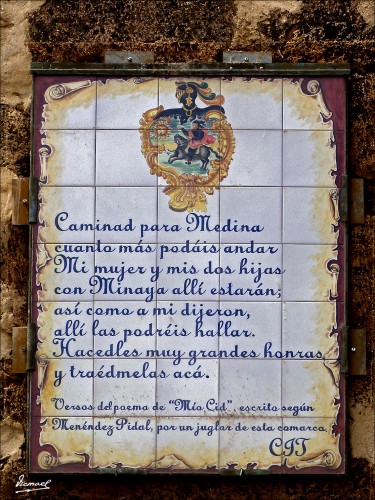 Caminad para Medina
cuanto más podáis andar
Mi mujer y mis dos hijas
con Minaya allí estarán;
así como a mi dijeron,
allí las podréis hallar.
Hacedles muy grandes honras
y traédmelas acá.
Versos del poema de "Mío Cid", escrito según
Menéndez Pidal, por un juglar de esta comarca
CIT